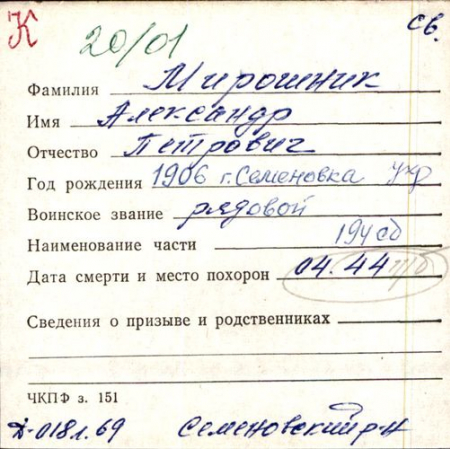 К 20/01 св.
Фамилия Мирошник
Имя Александр
Отчество Петрович
Год рождения 1906 г. Семеновка
Воинское звание рядовой
Наименование части 194 сд
Дата смерти и место похорон 04.44 п/б
Сведения о призыве и родственниках
ЧКПФ з. 151
Д-018л.69 Семеновский р-н